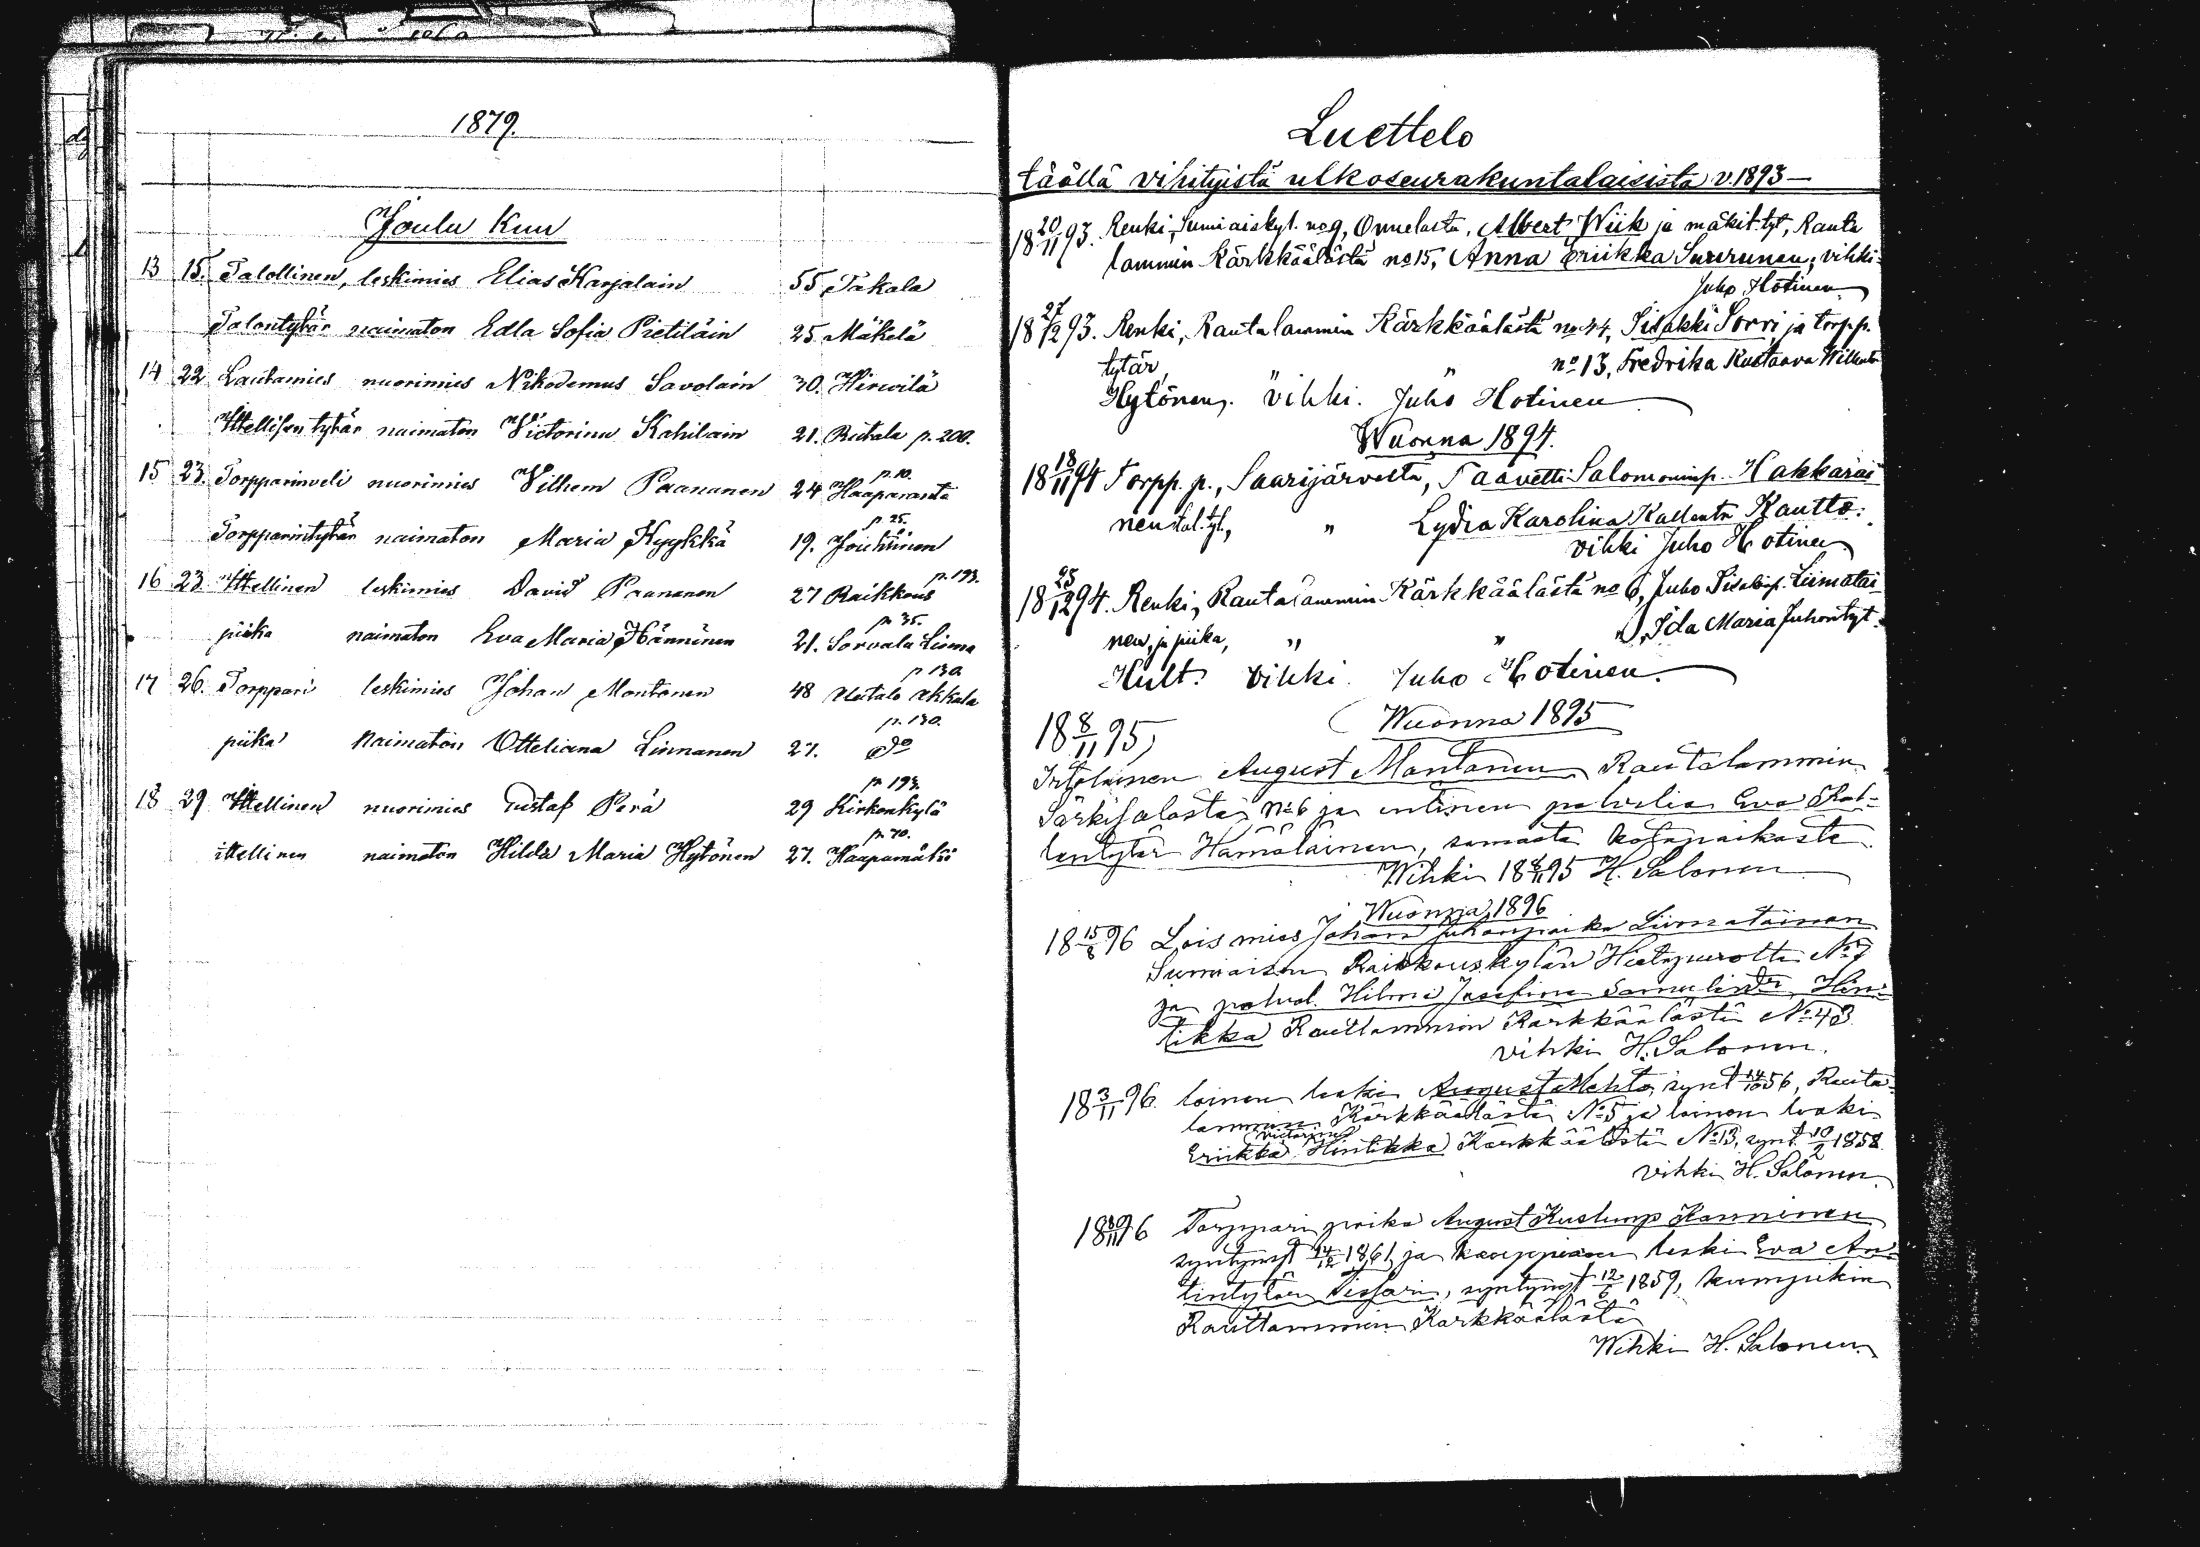 1879.
Joulu Kuu
13 15. Talollinen, leskimies Elias Karjalain 55 Takala
Talontytär naimaton Edla Sofia Pietiläin 25. Mäkelä
14 22 Lautamies nuorimies Nikodemus Savolain 30. Hirvilä
Ittellisen tytär naimaton Victorina Kahilain 21. Riitala p. 200.
15 23. Torpparinveli nuorimies Vilhem Paananen 24 p. 10. Haaparanta
Torpparintytär naimaton Maria Kyykkä 19. p. 25. Jouhtinen
16 23 Ittellinen leskimies David Paananen 27 p. 193. Raikkaus
piika naimaton Eva Maria Hänninen 21. p 35. Sorvala Sisma
17 26. Torppari leskimies Johan Montonen 48 p 130. Uutalo Akkala
piika Naimaton Otteliana Linnanen 27. p. 130. do
18 29 Ittellinen nuorimies Gustaf Perä 29 p 193. Kirkonkylä
ittellinen naimaton Hilda Maria Hytönen 27. p. 70. Haapamäki
Luettelo
täällä vihityistä ulkoseurakuntalaisista v. 1893 —
18 20/11 93. Renki, Sumiaiskyl. no 9, Onnelasta, Albert Wiik ja mäkit. tyt, Rauta
lammin Kärkkäälästä no 15, Anna Eriikka Suurunen; vihki
Juho Hotinen
18 27/12 93. Renki, Rautalammin Kärkkäälästä no 44, Iisakki Sorri, ja torpp.
tytär, " " no 13, Fredrika Kustaava Willentr
Hytönen. vihki. Juho Hotinen
Wuonna 1894.
18 18/11 94 Torpp. p., Saarijärveltä, Taavetti Salomoninp. Hakkarai
nen tal. tyt., " Lydia Karolina Kallentr Kautto:
vihki Juho Hotinen
18 25/12 94. Renki, Rautalammin Kärkkäälästä no 6, Juho Iisakinp. Liimatai
nen, ja piika, " " " , Ida Maria Juhontyt.
Hult. Vihki. Juho Hotinen.
Wuonna 1895
18 8/11 95,
Irtolainen August Montonen Rautalammin
Särkisalosta No 6 ja entinen palvelia Eva Kal-
lentytär Hämäläinen, samasta kotopaikasta.
Wihki 18 8/11 95 H. Salonen
Wuonna 1896
18 15/8 96 Lois mies Johan Juhonpoika Liimatainen
Sumiaisen Raikkauskylän Hietapurolta No 7
ja palvel. Hilma Josefina Samulintr Hin-
tikka Rautlammin Karkkäälästä No 43
vihki H. Salonen.
18 3/11 96. loinen leski August Lehto, synt 14/10 56, Rauta-
lammin Kärkkäälästä No 5 ja loinen leski
Eriikka Victorina Hintikka Karkkäälästä No 13, synt. 10/2 1858.
vihki H. Salonen.
18 30/11 96 Torppari poika August Kustunp Hänninen
syntynyt 14/12 1861, ja kauppiaan leski Eva An-
tintytär Tissari, syntynyt 12/6 1859, kumpikin
Rautlammin Karkkäälästä
Wihki H. Salonen.